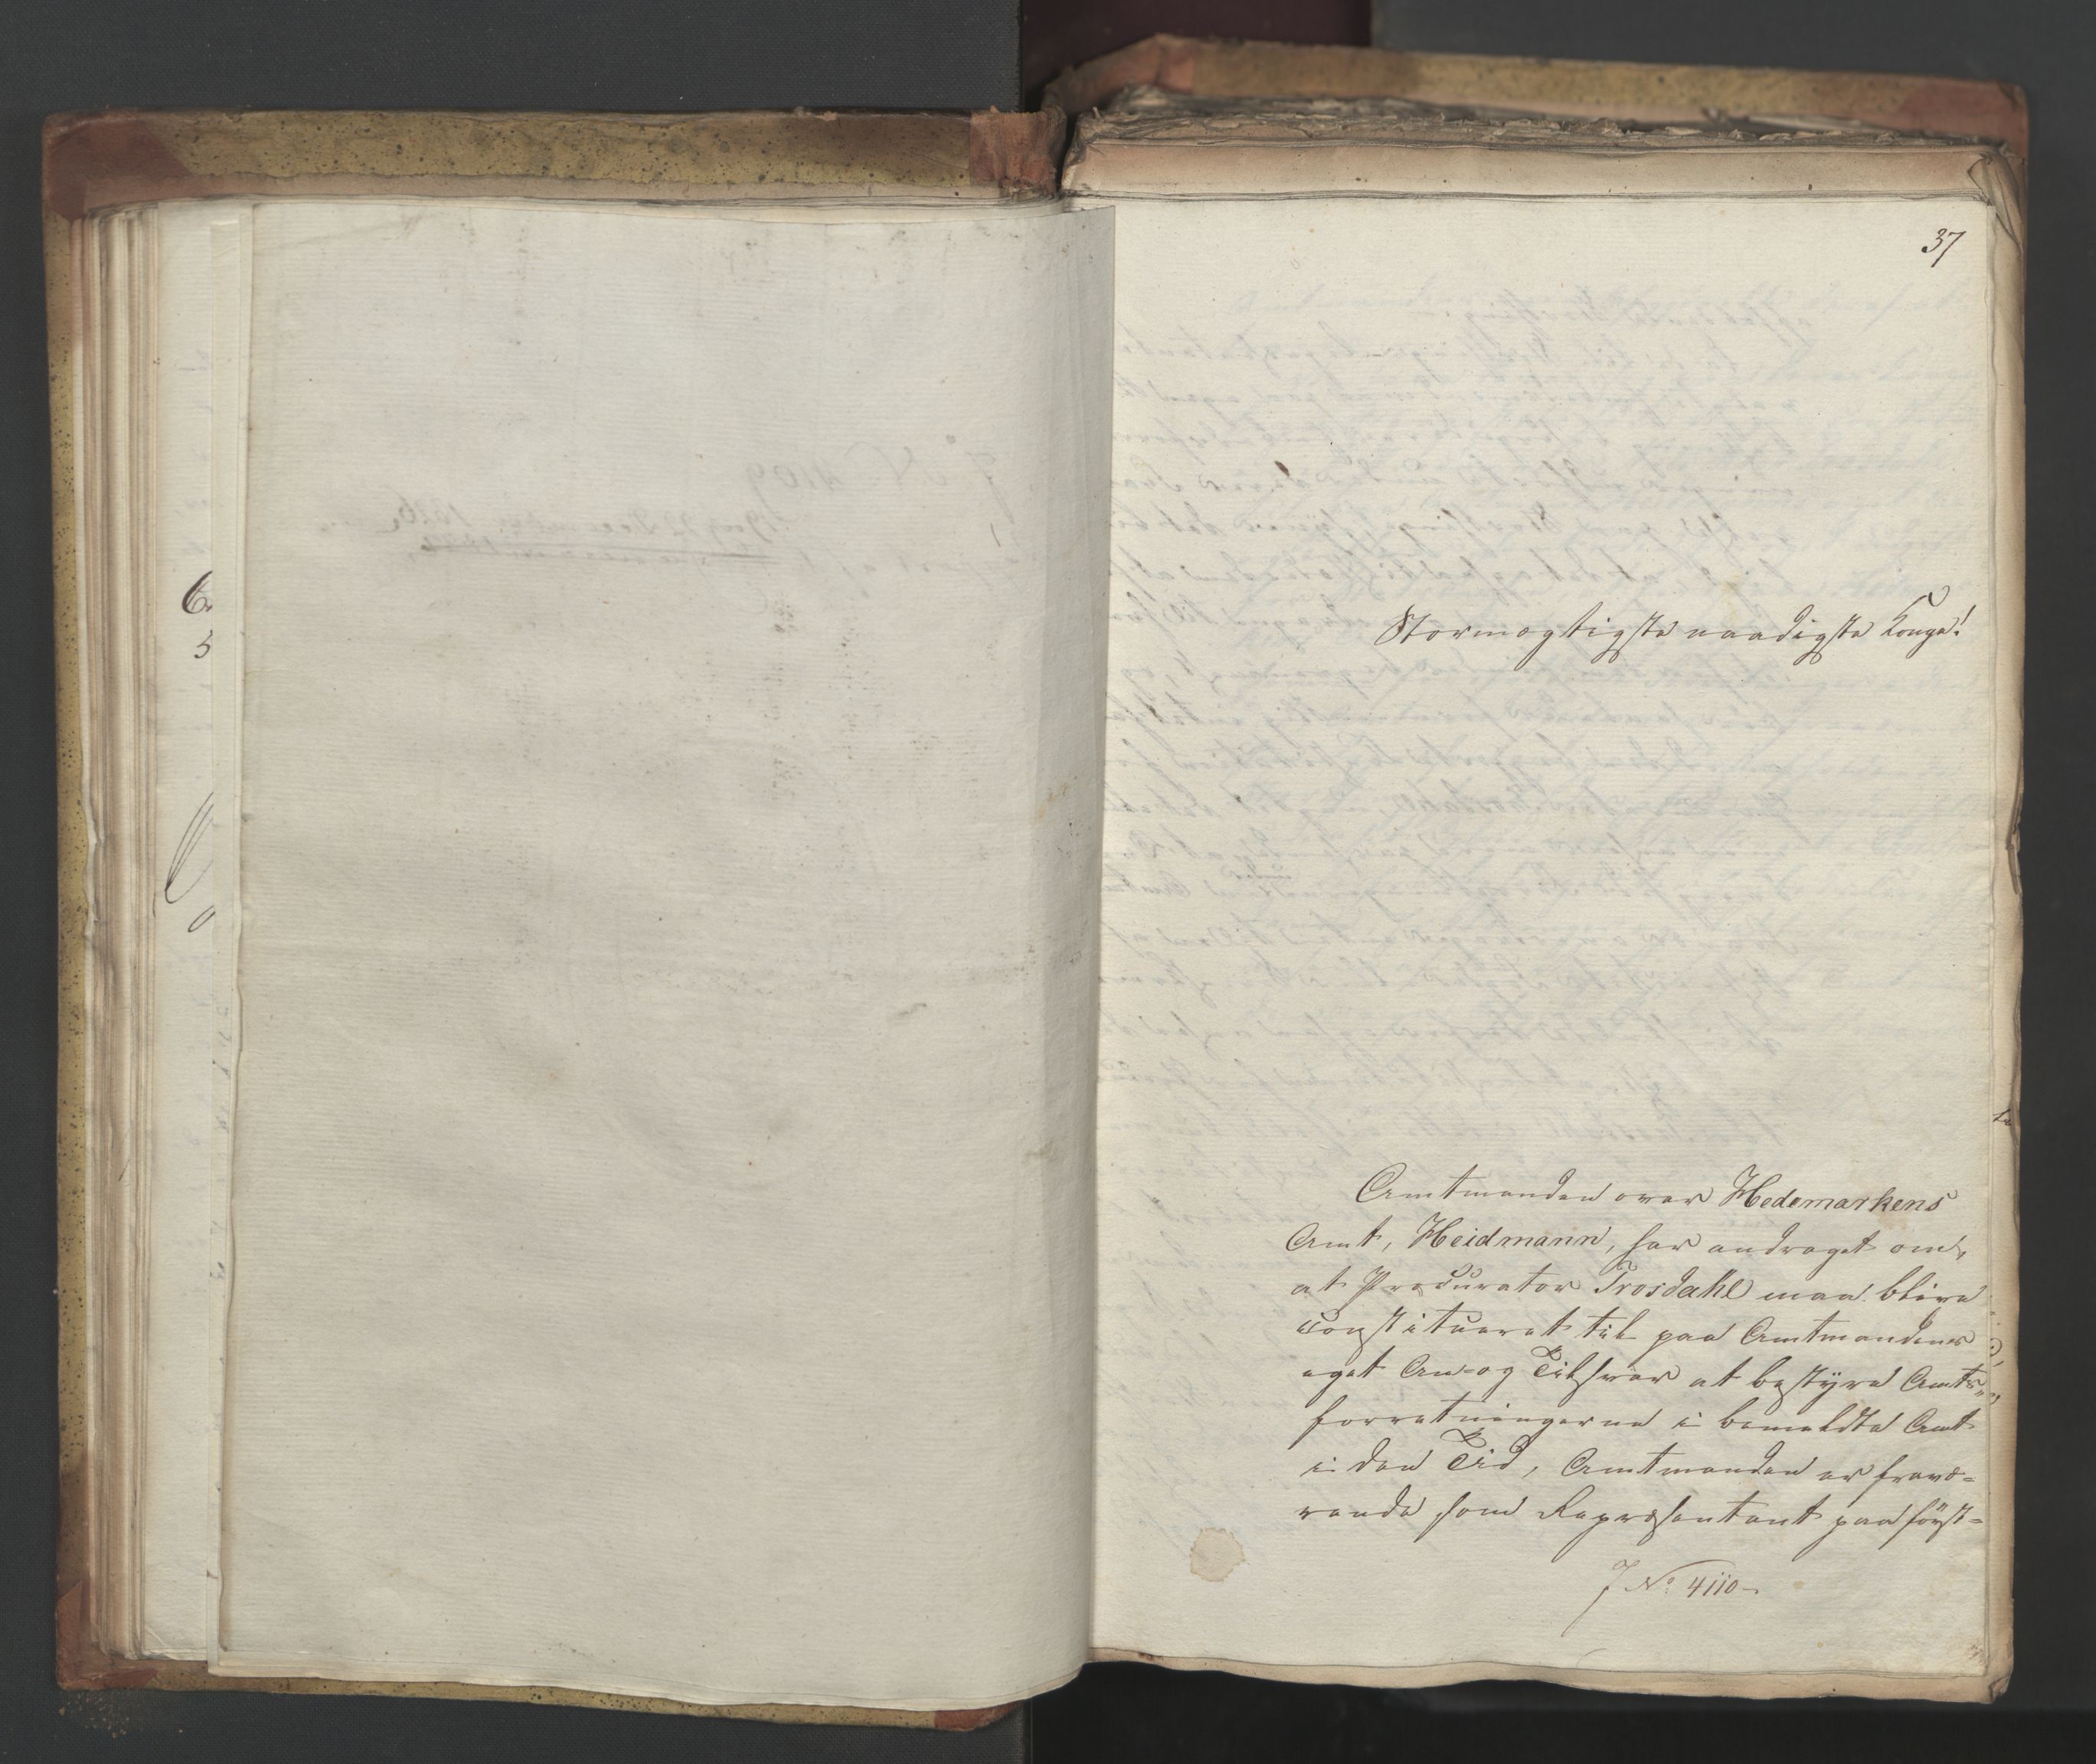 37
Stormægtigste naadigste Konge!
Amtmanden over Hedemarkens
Amt, Heidmann, har andraget om,
at Procurator Trosdahl maa blive
constitueret til paa Amtmandens
eget An- og Tilsvar at bestyre Amts-
forretningerne i bemeldte Amt
i den Tid, Amtmanden er fravæ-
rende som Repræsentant paa först-
J No 4110-